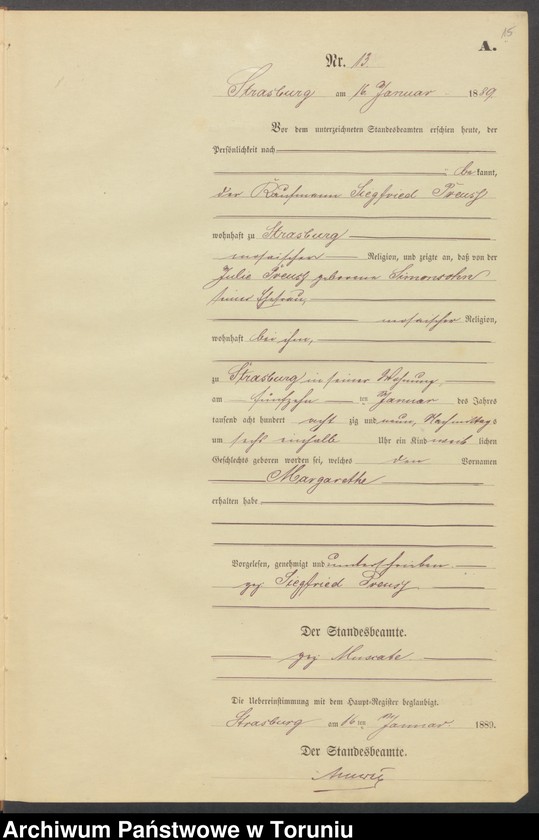 15
A.
Nr. 13.
Strasburg am 16 Januar 1889
Vor dem unterzeichneten Standesbeamten erschien heute, der
Persönlichkeit nach
bekannt,
der Kaufmann Siegfried Preuss
wohnhaft zu Strasburg
mosaischer Religion, und zeigte an, daß von der
Julie Preuss geborene Simonsohn
seiner Ehefrau,
mosaischer Religion,
wohnhaft bei ihm,
zu Strasburg in seiner Wohnung,
am fünfzehn ten Januar des Jahres
tausend acht hundert acht zig und neun, Nachmittags
um sechs einhalb Uhr ein Kind weib lichen
Geschlechts geboren worden sei, welches den Vornamen
Margarethe
erhalten habe
Vorgelesen, genehmigt und unterschrieben
gez Siegfried Preuss
Der Standesbeamte.
gez
Die Uebereinstimmung mit dem Haupt-Register beglaubigt.
Strasburg am 16ten Januar. 1889.
Der Standesbeamte.
Archiwum Państwowe w Toruniu